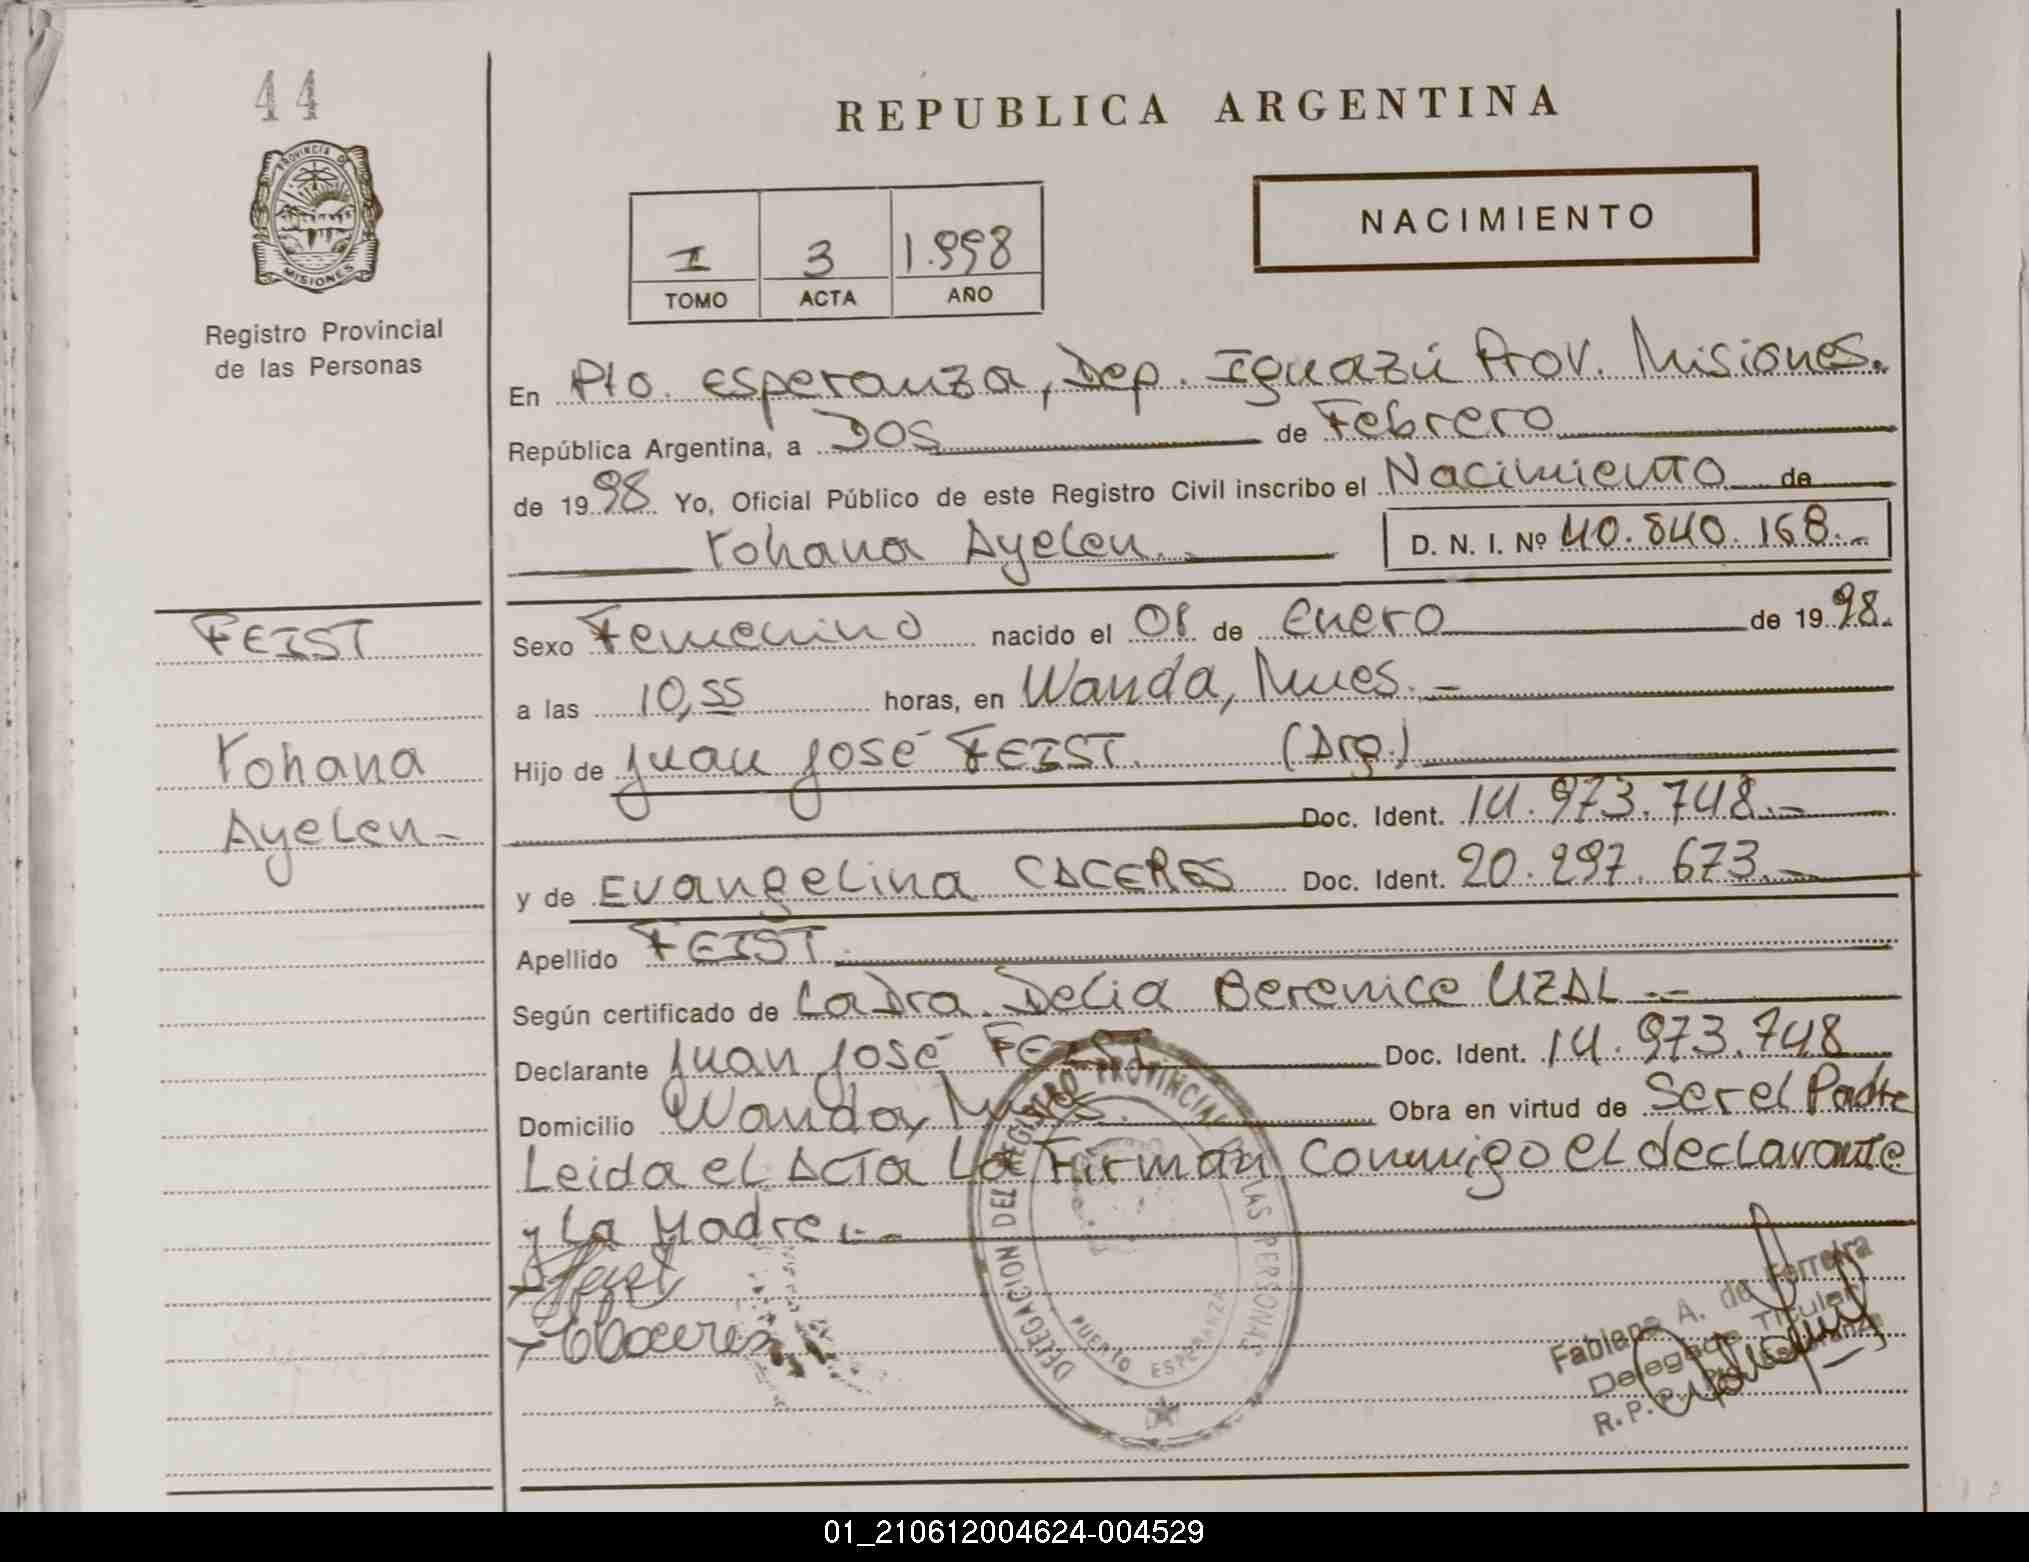 44
PROVINCIA DE
MISIONES
Registro Provincial
de las Personas
REPUBLICA ARGENTINA
NACIMIENTO
I 3 1.998
TOMO ACTA AÑO
En Pto. Esperanza, Dep. Iguazú Prov. Misiones.
República Argentina, a Dos de Febrero
de 1998 Yo, Oficial Público de este Registro Civil inscribo el Nacimiento de
Yohana Ayelen.
D. N. I. Nº 40.840.168.-
FEIST
Yohana
Ayelen-
Sexo Femenino nacido el 08 de Enero de 1998.
a las 10,55 horas, en Wanda, Mnes.-
Hijo de Juan José FEIST. (Arg.)
Doc. Ident. 14.973.748.-
y de Evangelina CACERES Doc. Ident. 20.297.673.-
Apellido FEIST.
Según certificado de La Dra. Delia Berenice UZAL.--
Declarante Juan José FEIST Doc. Ident. 14.973.748
Domicilio Wanda, Mnes. Obra en virtud de Ser el Padre
Leida el Acta La Firman Conmigo el declarante
y La Madre.-
DELEGACION DEL REGISTRO PROVINCIAL DE LAS PERSONAS
PUERTO ESPERANZA
Fabiana A. de Ferreira
Delegada Titular
R.P.P. Pto. Esperanza
01_210612004624-004529